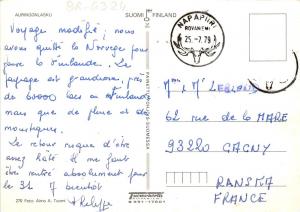 BR-6320
AURINGONLASKU
SUOMI FINLAND
Voyage modifié ; nous
avons quitté la Norvège pour
faire la Finlande. Le
paysage est grandiose, près
de 60000 lacs en Finlande
mais que de pluie et de
moustiques.
Le retour risque d'être
assez hâté il me faut
être rentré absolument pour
le 31. A bientôt
Philippe
NAPAPIIRI
ROVANIEMI
25.-7.79
Mme, Mr LEBLOND
62 rue de la MARE
93220 GAGNY
RANSKA
FRANCE